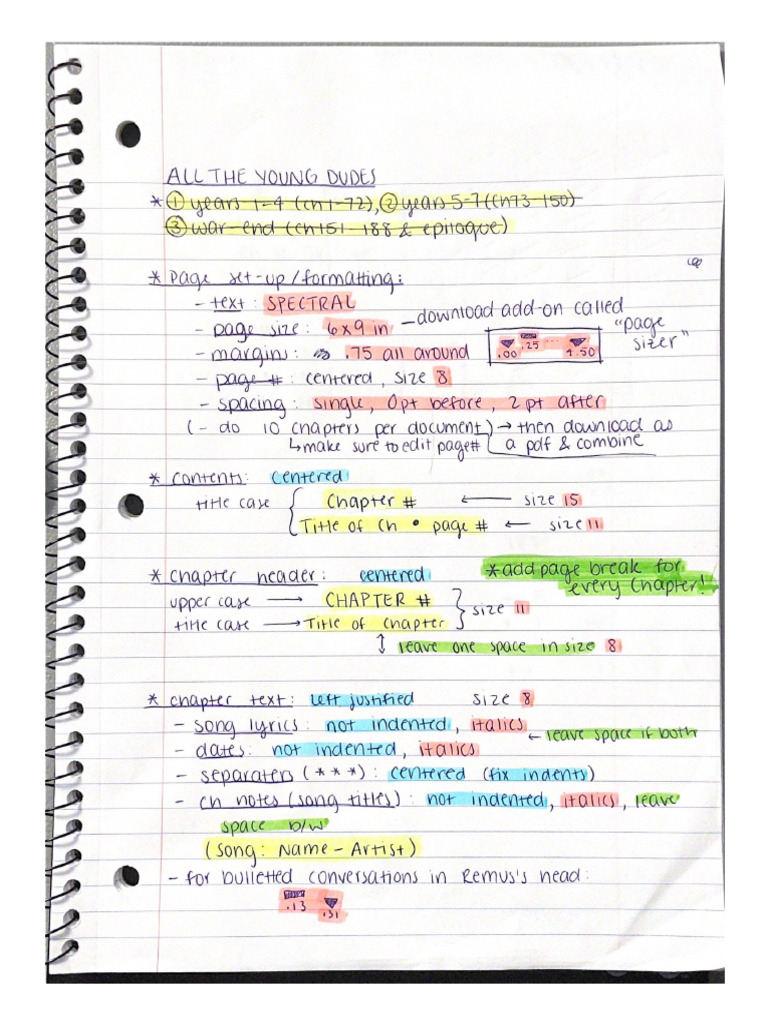 ALL THE YOUNG DUDES
* ① years 1-4 (ch 1-72), ② years 5-7 (ch 73-150)
③ war-end (ch 151-188 & epilogue)
* page set-up/formatting:
- text: SPECTRAL
- page size: 6x9 in - download add-on called "page sizer"
- margins: .75 all around .00 .25 ... 4.50
- page #: centered, size 8
- spacing: single, 0pt before, 2 pt after
(- do 10 chapters per document) → then download as
↳ make sure to edit page# a pdf & combine
* contents: centered
title case { Chapter # ← size 15
Title of Ch • page # ← size 11
* chapter header: centered *add page break for every chapter!
upper case → CHAPTER # } size 11
title case → Title of Chapter
↕ leave one space in size 8
* chapter text: left justified size 8
- song lyrics: not indented, italics
← leave space if both
- dates: not indented, italics
- separaters (***): centered (fix indents)
- ch notes (song titles): not indented, italics, leave
space b/w
(song: Name - Artist)
- for bulletted conversations in Remus's head:
.13 .31